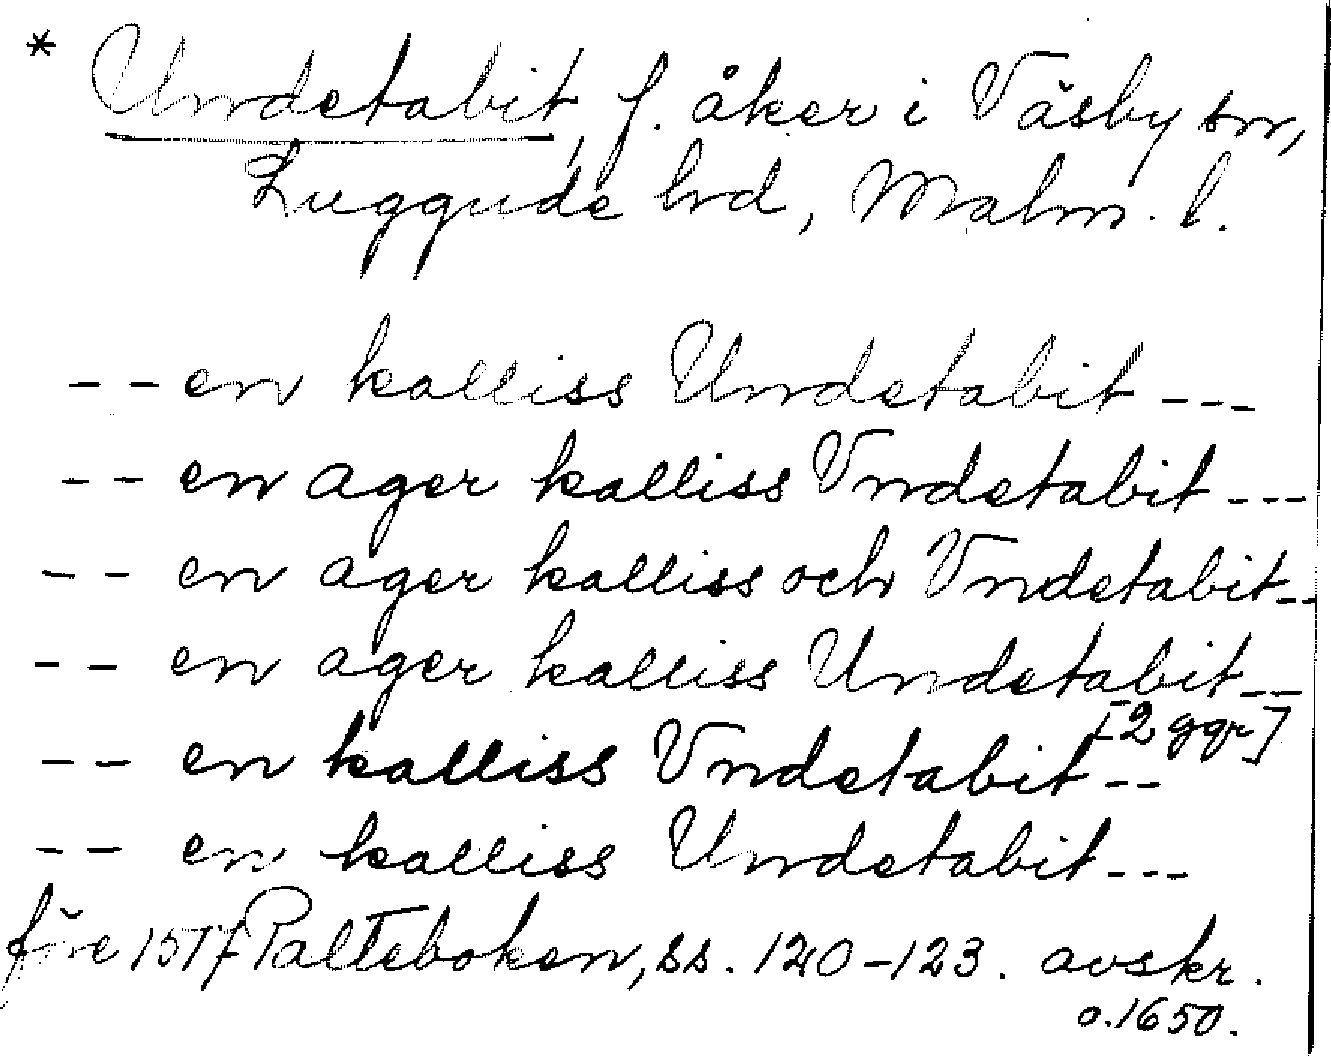 * Undetabit, f. åker i Väsby sn,
Luggude hd, Malm. l.
-- en kalliss Undetabit ---
-- en ager kalliss Vndetabit ---
-- en ager kalliss och Vndetabit --
-- en ager kalliss Undetabit --
[2 ggr]
-- en kalliss Vndetabit --
-- en kalliss Undetabit ---
före 1517 Palteboken, ss. 120-123. avskr.
o. 1650.